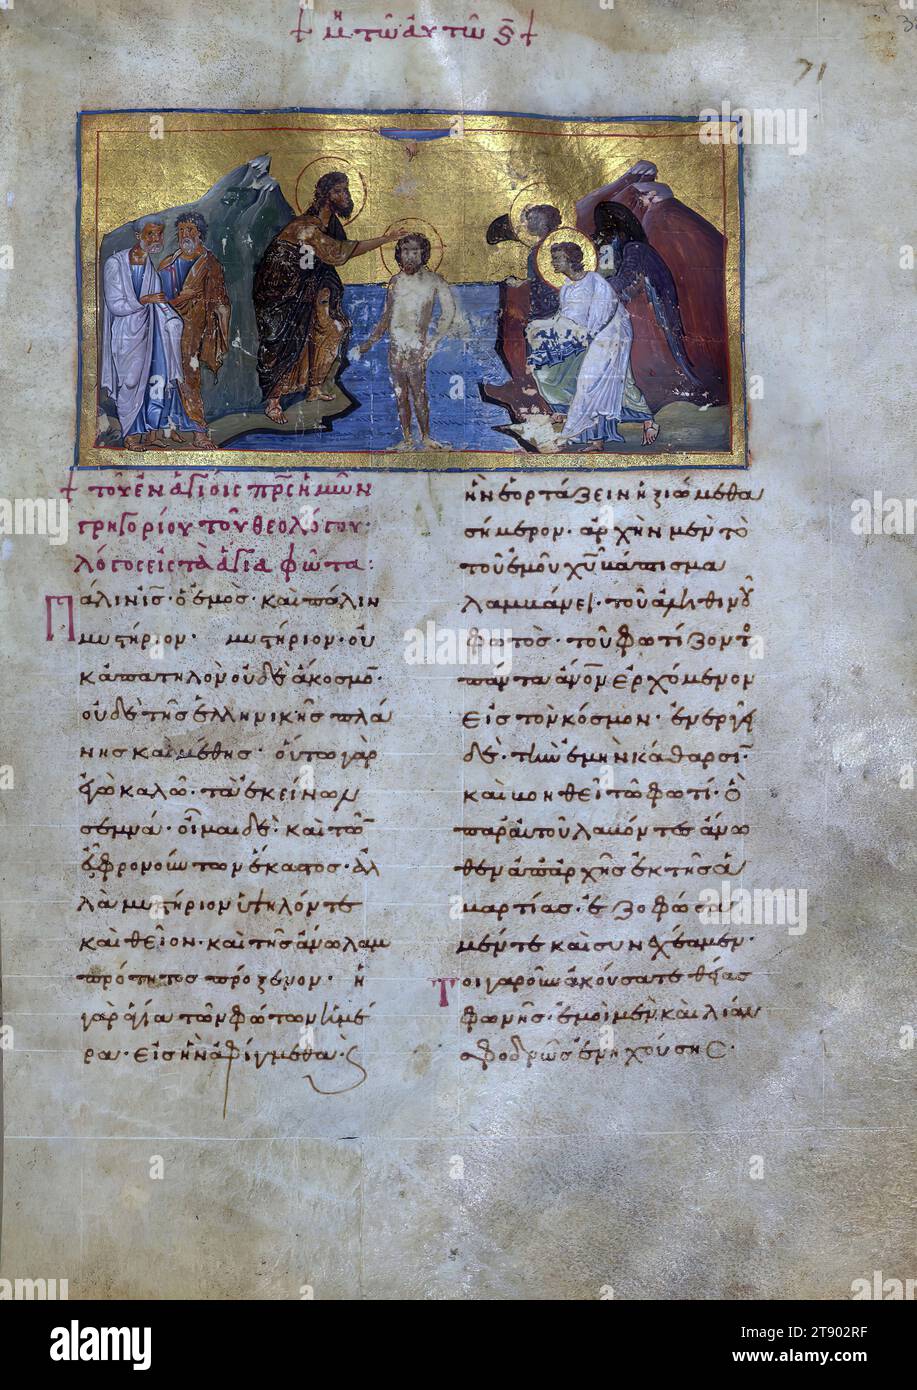 + μη τω αυτω ς +
71
+ τοῦ ἐν ἁγίοις πρς ἡμῶν
γρηγορίου τοῦ θεολόγου·
λόγος εἰς τὰ ἅγια φῶτα:
Πάλιν ις ὁ ἐμὸς· καὶ πάλιν
μυστήριον· μυστήριον· οὐ
κ ἀπατηλὸν οὐδὲ ἄκοσμο·
οὐδὲ τῆς ἑλληνικῆς πλά
νης καὶ μέθης· οὕτω γὰρ
ἐγὼ καλῶ· τὰ ἐκείνων
σεμνά· οἶμαι δὲ· καὶ τῶ
εὐφρονούντων ἕκαστος· ἀλ
λὰ μυστήριον ὑψηλόν τε
καὶ θεῖον· καὶ τῆς ἄνω λαμ
πρότητος πρόξενον· ἡ
γὰρ ἁγία τῶν φώτων ἡμέ
ρα· εἰς ἣν ἀφίγμεθα·
ἣν ἑορτάζειν ἠξιώμεθα
σήμερον· ἀρχὴν μὲν τὸ
τοῦ ἐμοῦ χυ βάπτισμα
λαμβάνει· τοῦ ἀληθινοῦ
φωτὸς· τοῦ φωτίζοντο
πάντα ἄνον ἐρχόμενον
εἰς τὸν κόσμον· ἐνεργεῖ
δὲ· τὴν ἐμὴν κάθαρσι
καὶ βοηθεῖ τῶ φωτί· ὃ
παρ αὐτοῦ λαβόντες ἄνω
θεν ἀπαρχῆς ἐκ τῆς ἁ
μαρτίας· ἐζοφώσα
μέν τε καὶ συνεχέαμεν·
Τοιγαροῦν ἀκούσατε θείας
φωνῆς· ἐμοὶ μὲν καὶ λίαν
σφοδρῶς ἐνηχούσης·
alamy
Image ID: 2T902RF
www.alamy.com